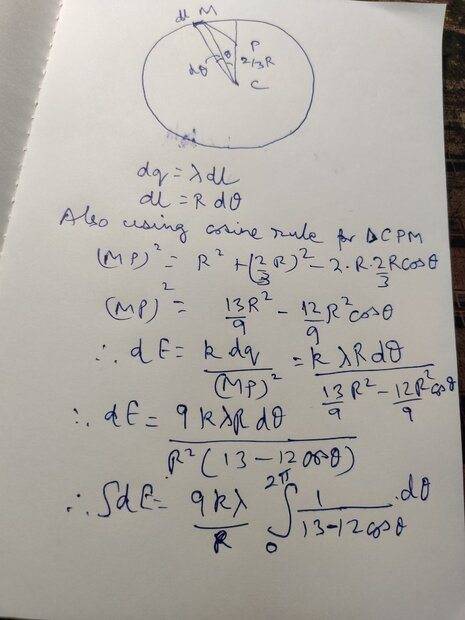 dl M
P
θ
dθ
2/3R
C
dq = λdl
dl = R dθ
Also using cosine rule for ΔCPM
(MP)² = R² + (2/3 R)² - 2·R·2/3 R cosθ
(MP)² = 13R²/9 - 12/9 R² cosθ
∴ dE = k dq/(MP)² = k λR dθ/(13/9 R² - 12R²/9 cosθ)
∴ dE = 9kλR dθ/(R² (13 - 12 cosθ))
∴ ∫dE = 9kλ/R ∫₀^2π 1/(13-12cosθ) · dθ